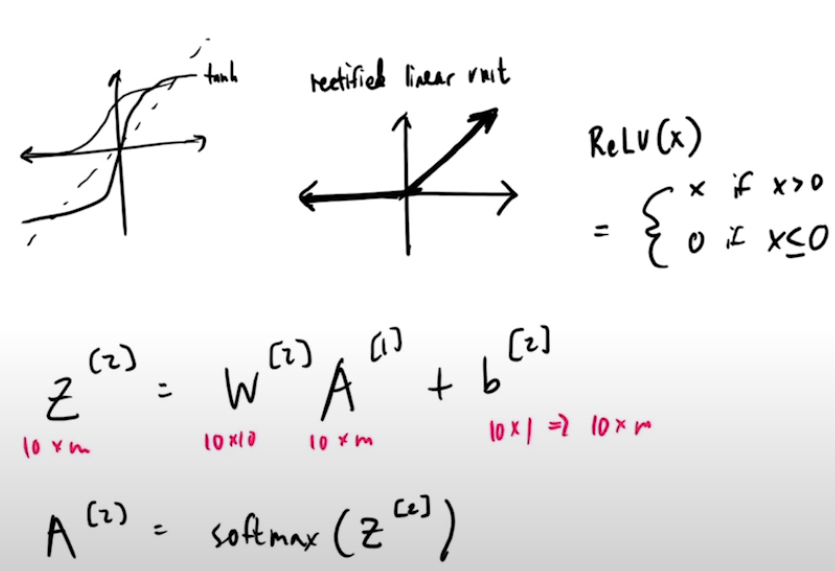 tanh
rectified linear unit
ReLU(x)
= { x if x>0
0 if x≤0
Z^[2] = W^[2] A^[1] + b^[2]
10 x m 10x10 10 x m 10 x 1 => 10 x m
A^[2] = softmax(Z^[2])